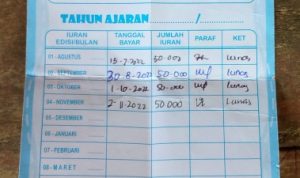 TAHUN AJARAN....../......
IURAN EDISI/BULAN TANGGAL BAYAR JUMLAH IURAN PARAF KET
01 - AGUSTUS 15-7-2022 50.000 lunas
02 - SEPTEMBER 30-8-2022 50.000 lunas
03 - OKTOBER 1-10-2022 50.000 lunas
04 - NOVEMBER 2-11-2022 50.000 Lunas
05 - DESEMBER
06 - JANUARI
07 - FEBRUARI
08 - MARET